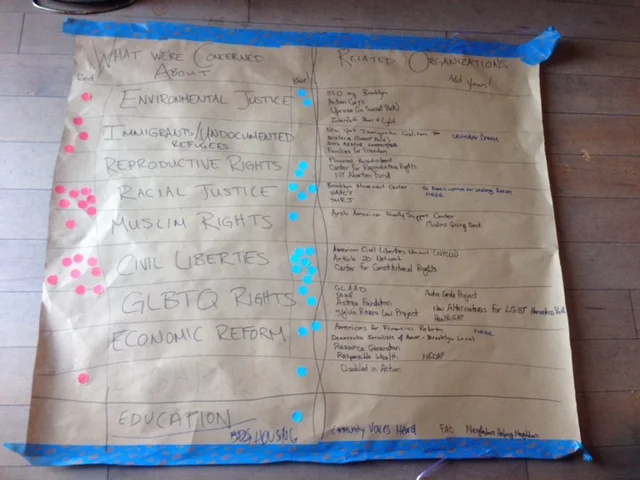 WHAT WE'RE CONCERNED ABOUT
RELATED ORGANIZATIONS
Add yours!
ENVIRONMENTAL JUSTICE
350.org Brooklyn
Uprose (in Sunset Park)
IMMIGRANTS/UNDOCUMENTED
REFUGEES
New York Immigration Coalition
Families for Freedom
REPRODUCTIVE RIGHTS
Planned Parenthood
Center for Reproductive Rights
NY Abortion Fund
RACIAL JUSTICE
Brooklyn Movement Center
NAACP
SURJ
MUSLIM RIGHTS
Arab American Family Support Center
Muslims Giving Back
CIVIL LIBERTES
American Civil Liberties Union (NYCLU)
Article 20 Network
Center for Constitutional Rights
GLBTQ RIGHTS
GLAAD
SAGE
Astrea Foundation
Sylvia Rivera Law Project
Audre Lorde Project
New Alternatives for LGBT Homeless Youth
HealthGAP
ECONOMIC REFORM
Americans for Financial Reform
Democratic Socialists of Amer. - Brooklyn Local
Resource Generation
Responsible Wealth
NEDAP
Disabled in Action
EDUCATION
HOUSING
Community Voices Heard
FAC
Neighbors Helping Neighbors